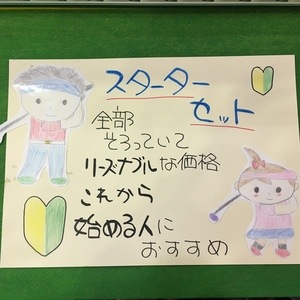 スターター
セット
全部
そろっていて
リーズナブルな価格
これから
始める人に
おすすめ